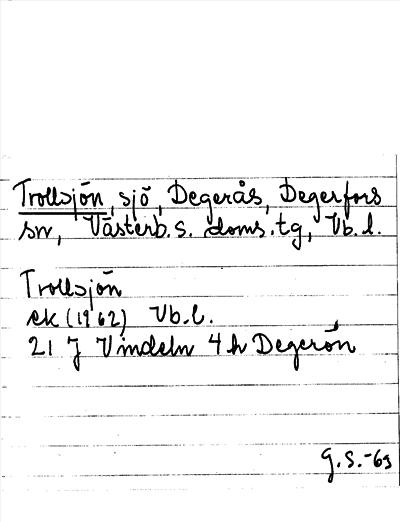 Trollsjön, sjö, Degerås, Degerfors
sn, Västerb. s. doms. tg, Vb. l.
Trollsjön
ek (1962) Vb. l.
21 J Vindeln 4 h Degerön
G. S. -69